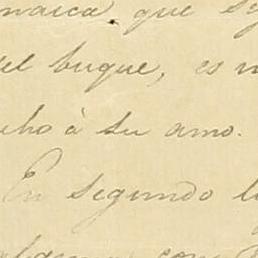 maica que
el buque, es
cho à su amo.
En segundo
con